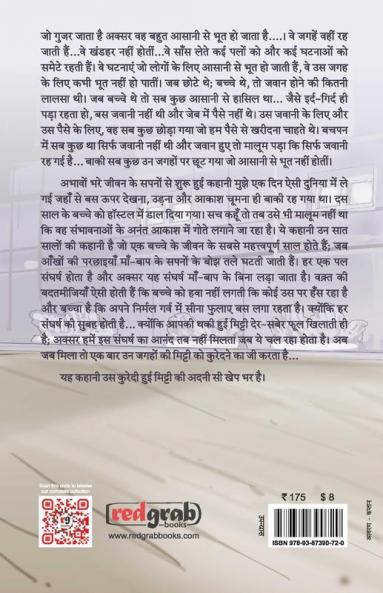 जो गुजर जाता है अक्सर वह बहुत आसानी से भूत हो जाता है....। वे जगहें वहीं रह
जाती हैं...वे खंडहर नहीं होतीं...वे साँस लेते कई पलों को और कई घटनाओं को
समेटे रहती हैं। वे घटनाएं जो लोगों के लिए आसानी से भूत होती हैं, वे उस जगह
के लिए कभी भूत नहीं हो पातीं। जब छोटे थे; बच्चे थे, तो जवान होने की कितनी
लालसा थी। जब बच्चे थे तो सब कुछ आसानी से हासिल था... जैसे इर्द-गिर्द ही
पड़ा रहता हो, बस जवानी नहीं थी और जेब में पैसे नहीं थे। उस जवानी के लिए और
उस पैसे के लिए, वह सब कुछ छोड़ा गया जो हम पैसे से खरीदना चाहते थे। बचपन
में सब कुछ था सिर्फ जवानी नहीं थी और जवान हुए तो मालूम पड़ा कि सिर्फ जवानी
रह गई है... बाकी सब कुछ उन जगहों पर छूट गया जो आसानी से भूत नहीं होतीं।
अभावों भरे जीवन के सपनों से शुरू हुई कहानी मुझे एक दिन ऐसी दुनिया में ले
गई जहाँ से बस ऊपर देखना, उड़ना और आकाश चूमना ही बाकी रह गया था। दस
साल के बच्चे को हॉस्टल में डाल दिया गया। सच कहूँ तो तब उसे भी मालूम नहीं था
कि वह संभावनाओं के अनंत आकाश में गोते लगाने जा रहा है। ये कहानी उन सात
सालों की कहानी है जो एक बच्चे के जीवन के सबसे महत्त्वपूर्ण साल होते हैं; जब
आँखों की परछाइयाँ माँ-बाप के सपनों के बोझ तले घटती जाती हैं। हर एक पल
संघर्ष होता है और अक्सर यह संघर्ष माँ-बाप के बिना लड़ा जाता है। वक़्त की
बदतमीजियाँ ऐसी होती हैं कि बच्चे को हवा नहीं लगती कि कोई उस पर हँस रहा
है और बच्चा है कि अपने निर्मल गर्व में सीना फुलाए बस लगा रहता है। क्योंकि हर
संघर्ष की सुबह होती है... क्योंकि आपकी थकी हुई मिट्टी देर-सबेर फूल खिलाती ही
है; अक्सर हमें इस संघर्ष का आनंद तब नहीं मिलता जब ये चल रहा होता है। अब
जब मिला तो एक बार उन जगहों की मिट्टी को कुरेदने का जी करता है...
यह कहानी उस कुरेदी हुई मिट्टी की अदनी सी खेप भर है।
Scan this code to browse
our complete collection
redgrab
books
www.redgrabbooks.com
₹ 175 $ 8
उपन्यास
ISBN 978-93-87390-72-0